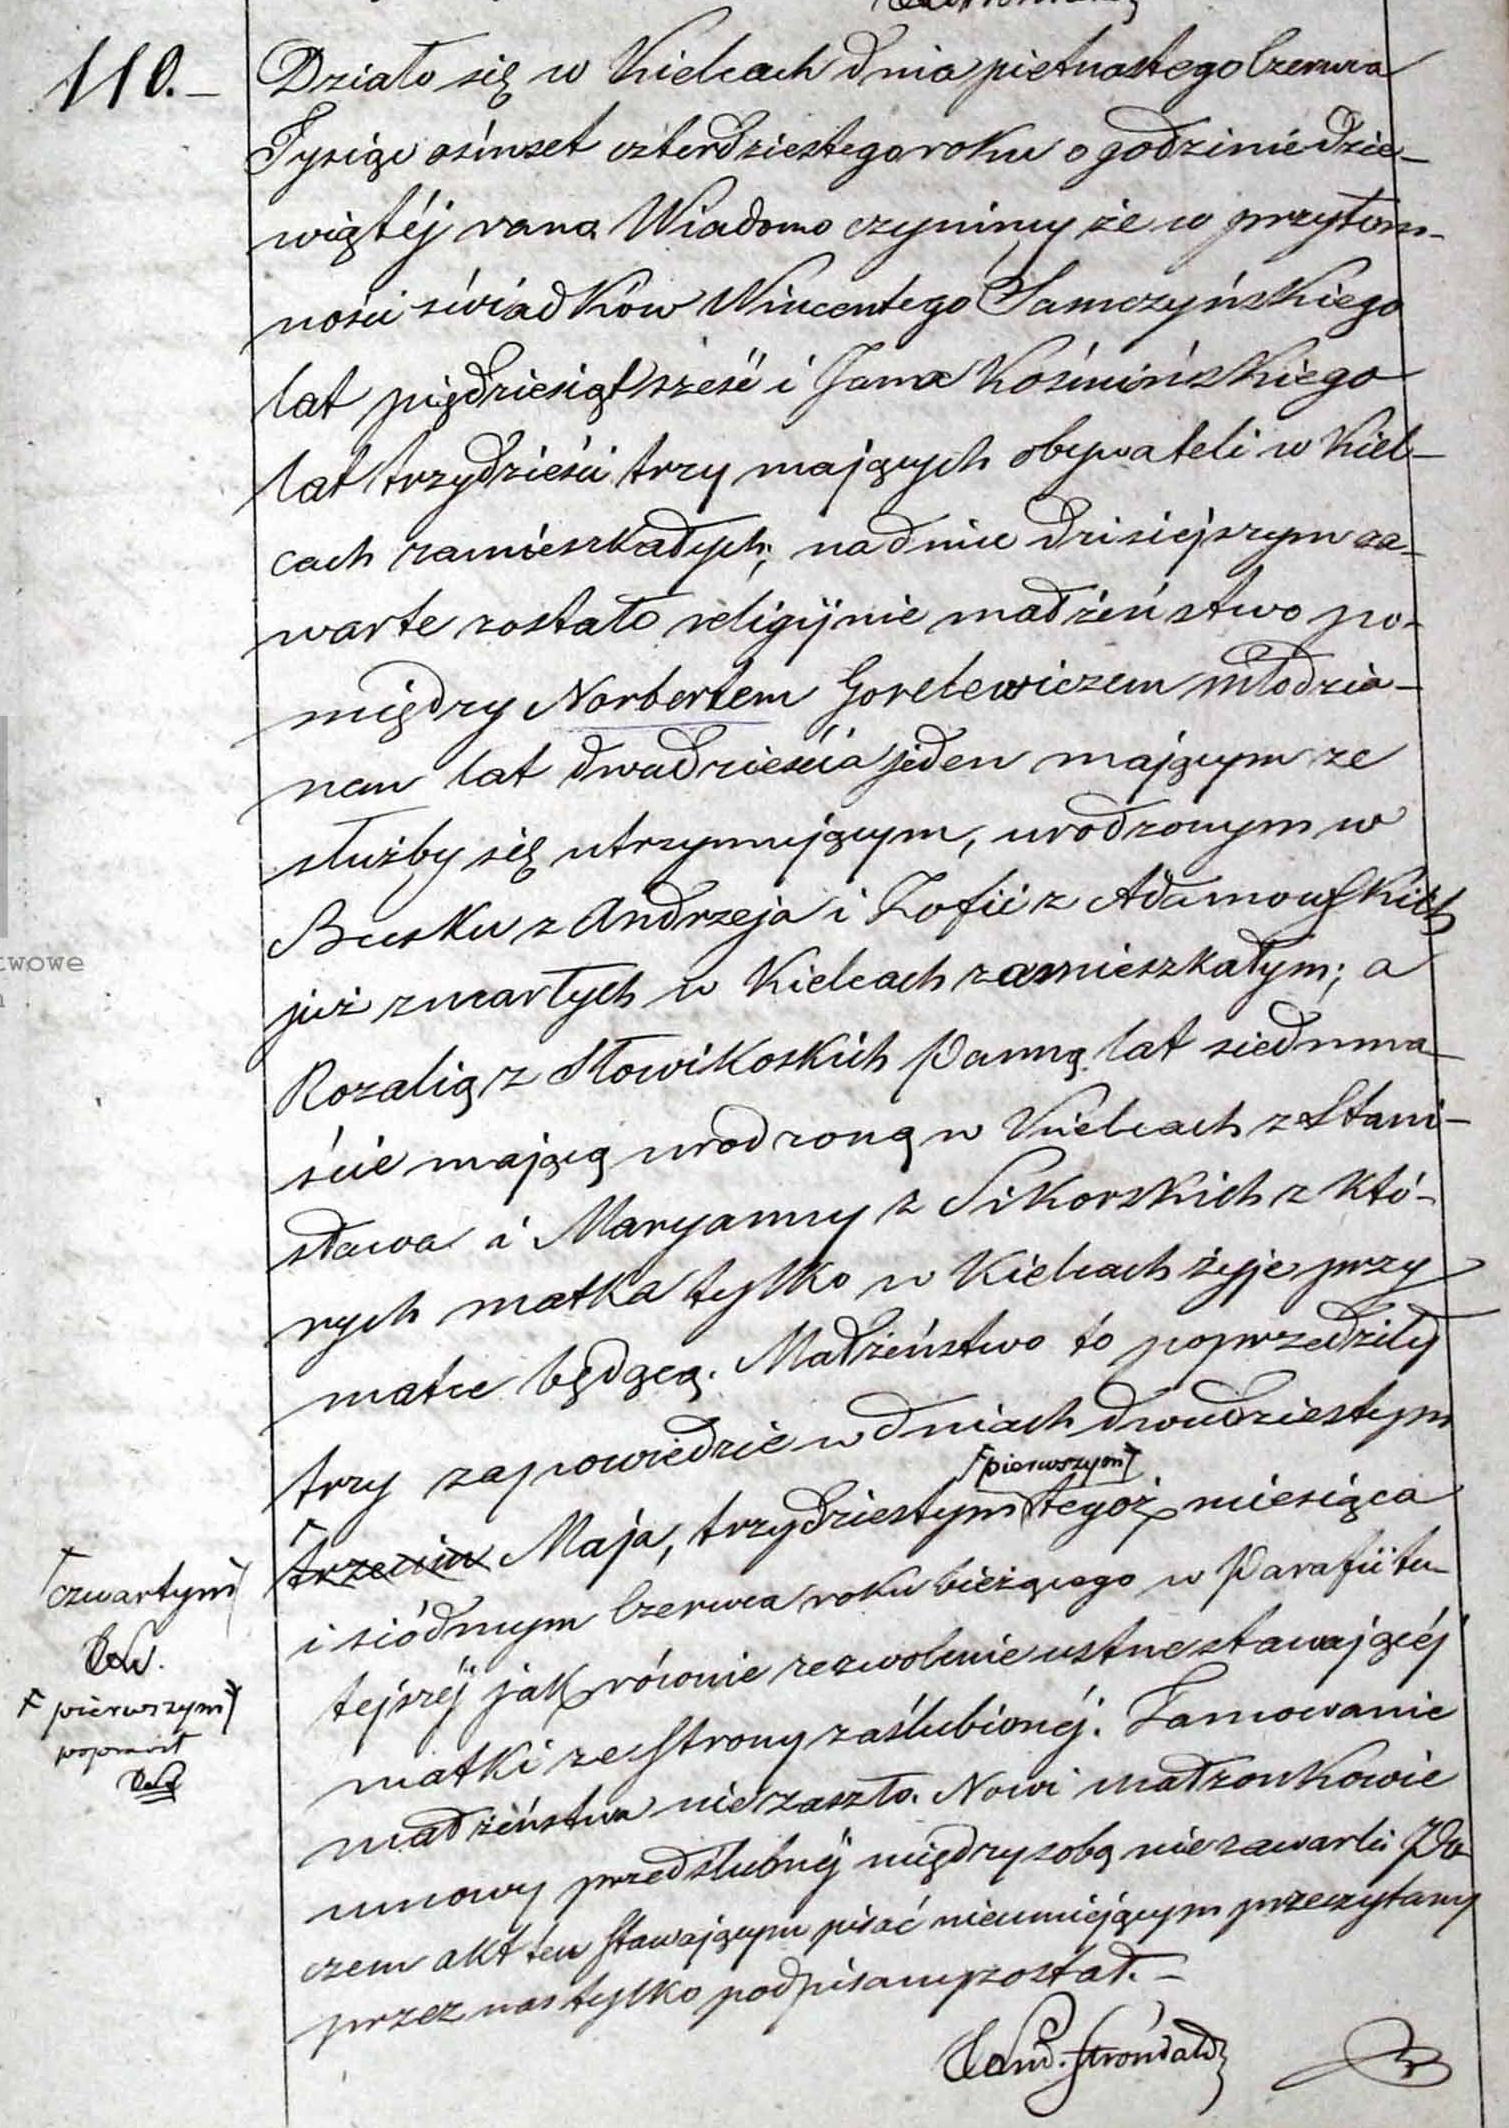 110.-
Działo się w Kielcach dnia pietnastego Czerwca
Tysiąc ośmset czterdziestego roku o godzinie dzie-
wiątéj rana Wiadomo czynimy że w przytom-
ności świadków Wincentego Samczyńskiego
lat pięćdziesiąt sześć i Jana Kośmińskiego
lat trzydzieści trzy mających obywateli w Kiel-
cach zamieszkałych; na dniu dzisiejszym za-
warte zostało religijnie małżeństwo po-
między Norbertem Gorelewiczem młodzia-
nem lat dwadzieścia jeden mającym ze
służby się utrzymującym, urodzonym w
Busku z Andrzeja i Zofii z Adamowskich
już zmarłych w Kielcach zamieszkałym; a
Rozalią z Słowikoskich Panną lat siedmna-
ście mającą urodzoną w Kielcach z Stani-
sława i Maryanny z Sikorskich z któ-
rych matka tylko w Kielcach żyje przy
matce będącą. Małżeństwo to poprzedziły
trzy zapowiedzie w dniach dwudziestym
pierwszym
trzecim Maja, trzydziestym tegoż miesiąca
czwartym
i siódmym Czerwca roku bieżącego w Parafii tu-
tejszéj jak równie zezwolenie ustne stawającéj
pierwszym
poprawił
matki ze strony zaślubionéj. Tamowanie
małżeństwa nie zaszło. Nowi małzonkowie
umowy przedślubnéj między sobą nie zawarli Po-
czem akt ten stawającym pisać nieumiejącym przeczytany
przez nas tylko podpisany został.-